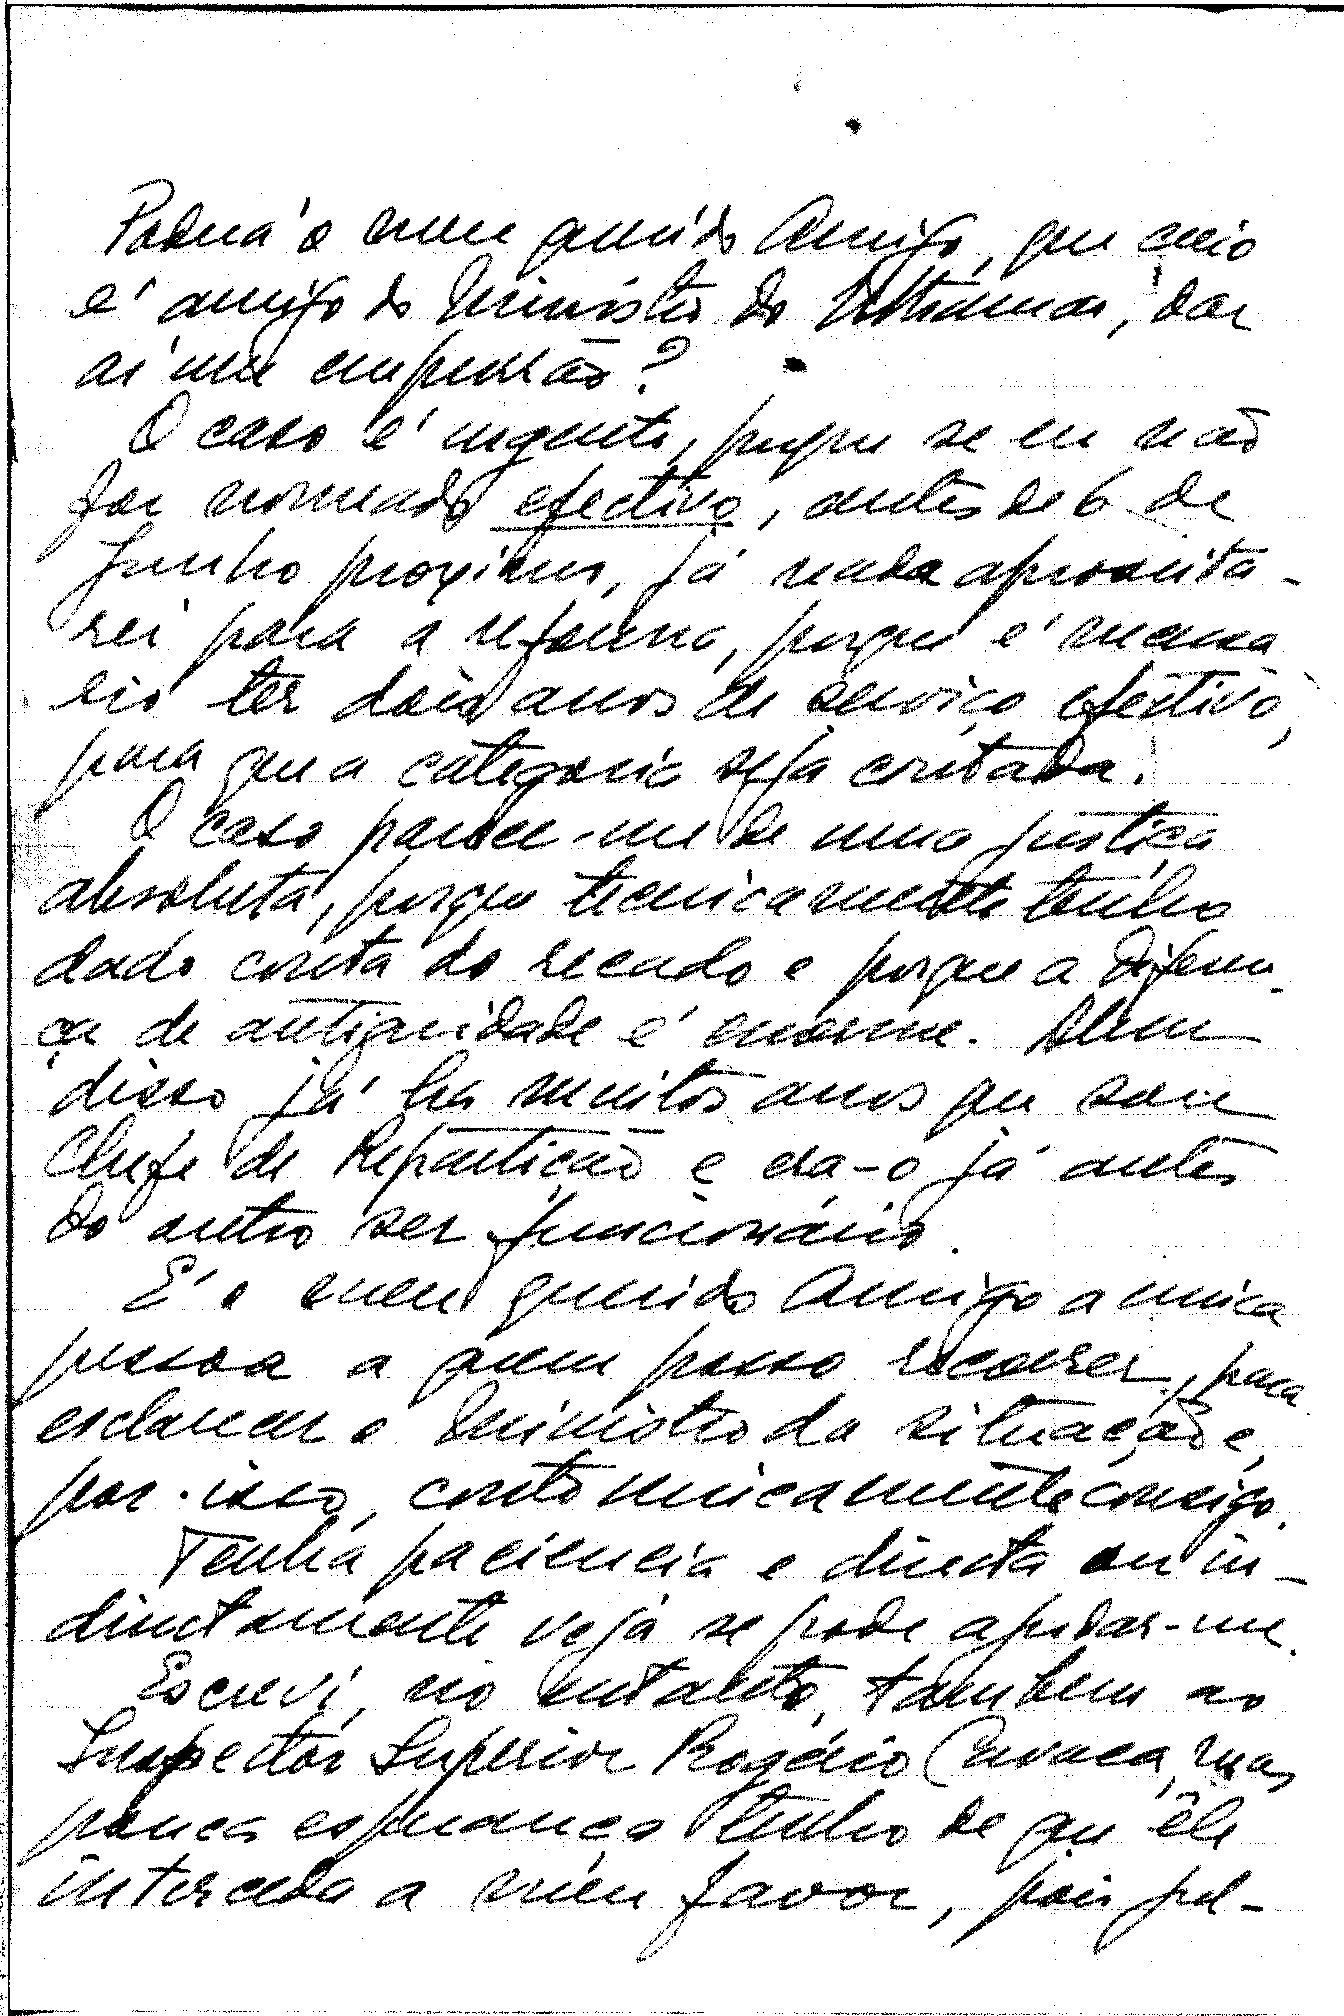 Poderá o meu querido Amigo, que creio
é amigo do Ministro do Ultramar, dar
aí um empurrão?
O caso é urgente, porque se eu não
for nomeado efectivo, antes de 6 de
Junho proximo, já nada aproveita-
rei para a reforma, porque é necessa
rio ter dois anos de serviço efectivo,
para que a categoria seja contada.
O caso parece-me de uma justiça
absoluta, porque tecnicamente tenho
dado conta do recado e porque a diferen-
ça de antiguidade é enorme. Alem
disso já ha muitos anos que sou
Chefe de Repartição e era-o já antes
do outro ser funcionário.
É o meu querido Amigo a unica
pessoa a quem posso recorrer, para
esclarecer o Ministro da situação e,
por isso, conto unicamente consigo.
Tenha paciencia e directa ou in-
directamente veja se pode ajudar-me.
Escrevi, no entanto, tambem ao
Inspector Superior Rogério Cavaca, mas
pouca esperança tenho de que êle
interceda a meu favor, pois pel-